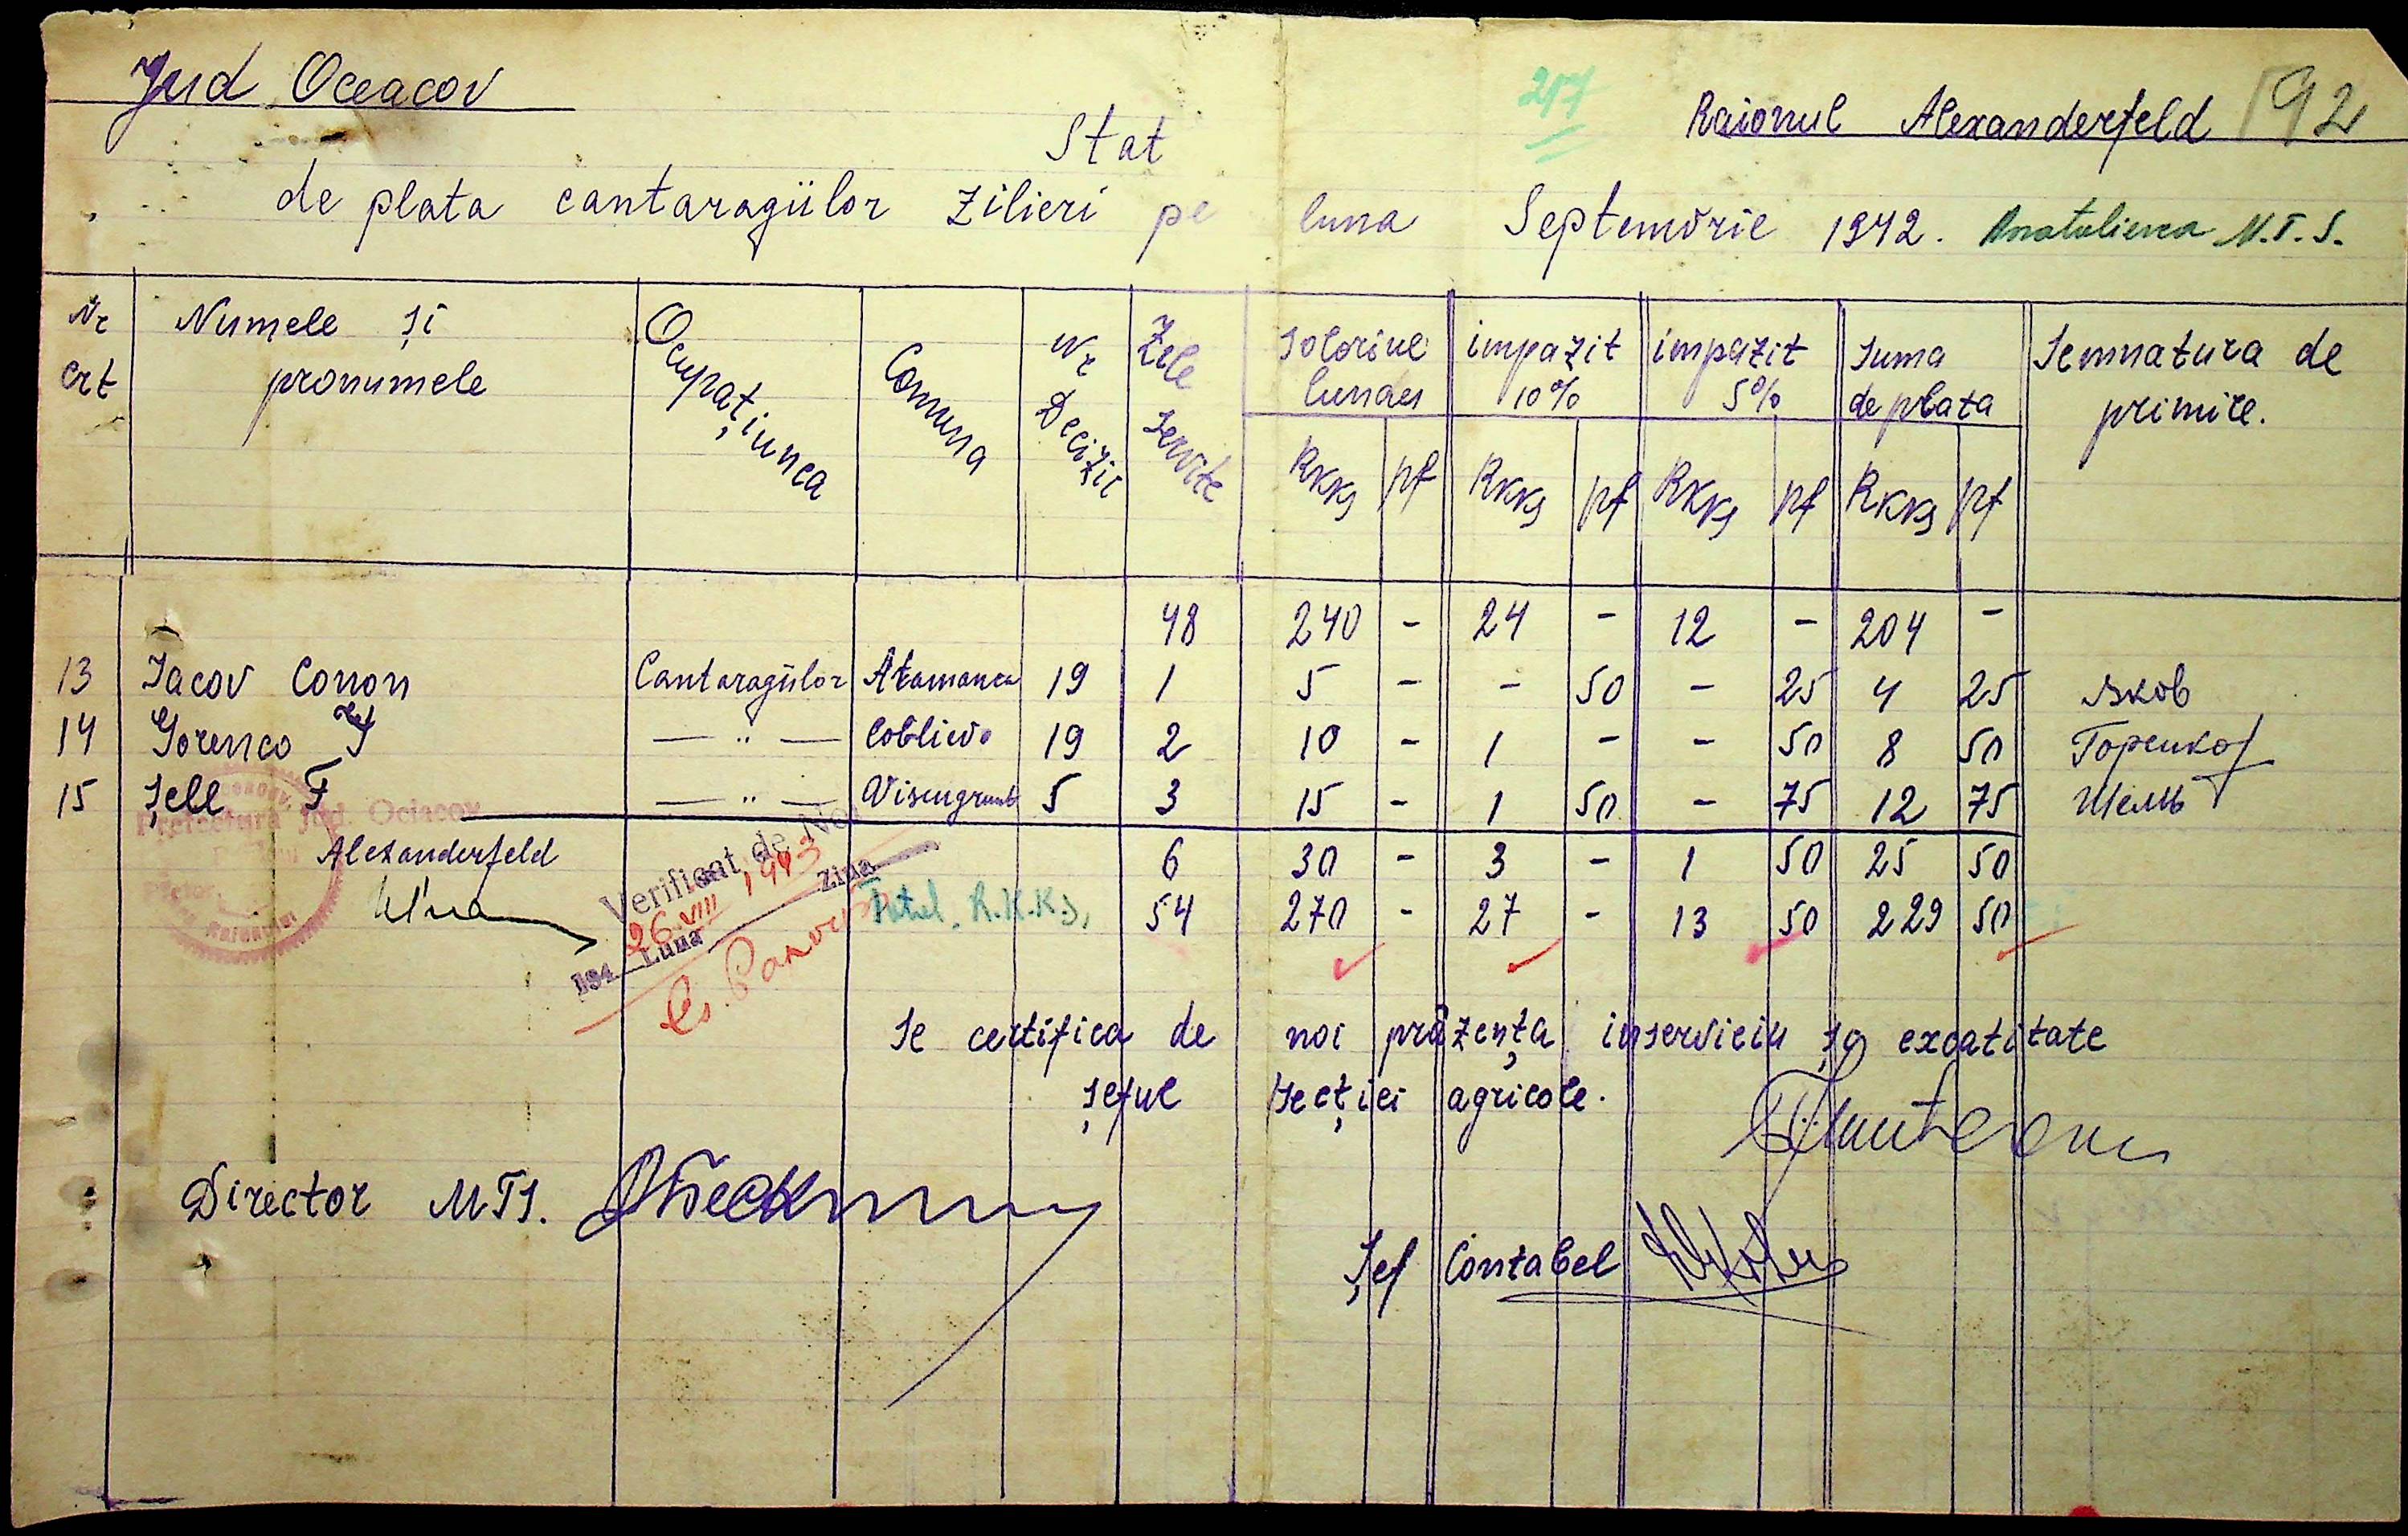 Jud Oceacov
217
Raionul Alexanderfeld 192
Stat
de plata cantaragiilor zilieri pe luna Septemvrie 1942. Anatolievca M.T.S.
Nr crt Numele și pronumele Ocupațiunea Comuna Nr Decizie Zile servite Soloriue lunaes impazit 10% impazit 5% Suma de plata Semnatura de primire.
RKKs pf RKKs pf RKKs pf RKKs pf
48 240 - 24 - 12 - 204 -
13 Iacov Conon Cantaragiilor Atamanca 19 1 5 - - 50 - 25 4 25 Яков
14 Gorenco I — " — Coblievo 19 2 10 - 1 - - 50 8 50 Горенко
15 Șell F — " — Visengrunt 5 3 15 - 1 50 - 75 12 75 Шелль
Prefectura Jud. Ociacov
Alexanderfeld 6 30 - 3 - 1 50 25 50
Total. R.K.K.S. 54 270 - 27 - 13 50 229 50
Verificat de Noi
26 VIII 1943
194 Luna Ziua
Se certifica de noi prăzența inserviciu șa exoatitate
Șeful Secției agricole.
Director MTS.
Șef Contabel